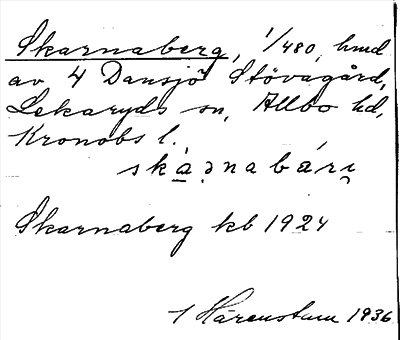 Skarnaberg, 1/480, hmd
av 4 Dansjö Stövagård,
Lekaryds sn, Allbo hd,
Kronobs l.
Skarnaberg kb 1924
1 Härenstam 1936